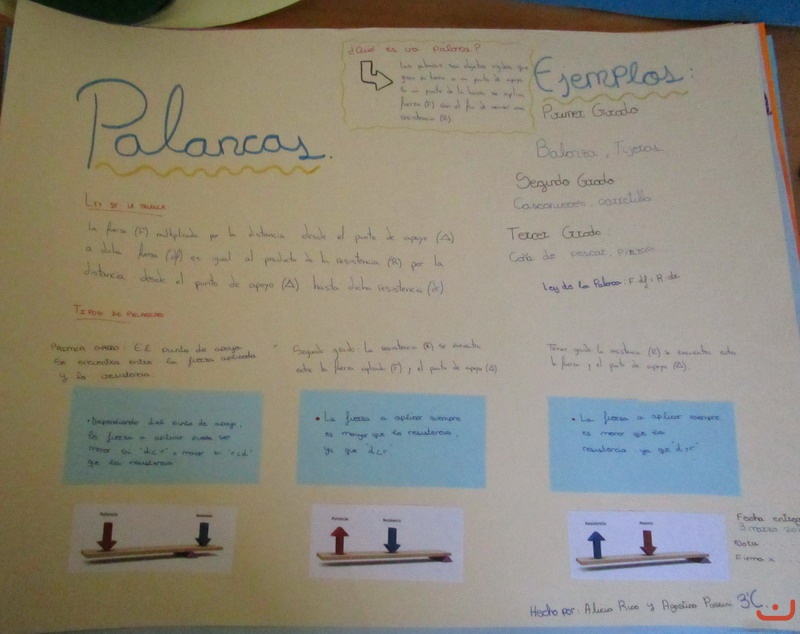 Palancas.
¿Qué es una palanca?
Las palancas son objetos rígidos que
giran en torno a un punto de apoyo
En un punto de la barra se aplica
fuerza (F) con el fin de vencer una
resistencia (R).
Ejemplos:
Primer Grado
Balanza, Tijeras
Segundo Grado
Cascanueces, carretilla
Tercer Grado
Caña de pescar, pinzas
Ley de la Palanca: F·df = R·dr
Ley de la palanca
La fuerza (F) multiplicada por la distancia desde el punto de apoyo (△)
a dicha fuerza (df) es igual al producto de la resistencia (R) por la
distancia desde el punto de apoyo (△) hasta dicha resistencia (dr).
Tipos de palancas
Primer grado: El punto de apoyo
se encuentra entre la fuerza aplicada
y la resistencia.
Segundo grado: la resistencia (R) se encuentra
entre la fuerza aplicada (F) y el punto de apoyo (△)
Tercer grado: la resistencia (R) se encuentra entre
la fuerza y el punto de apoyo (△).
• Dependiendo del punto de apoyo,
la fuerza a aplicar puede ser
menor si o mayor si
que la resistencia
• La fuerza a aplicar siempre
es menor que la resistencia,
ya que
• La fuerza a aplicar siempre
es menor que la
resistencia ya que
Potencia
Resistencia
Potencia
Resistencia
Resistencia
Potencia
Fecha entrega
3 marzo
Nota
Firma x
Hecho por: Alicia Rico y Agostina 3ºC.